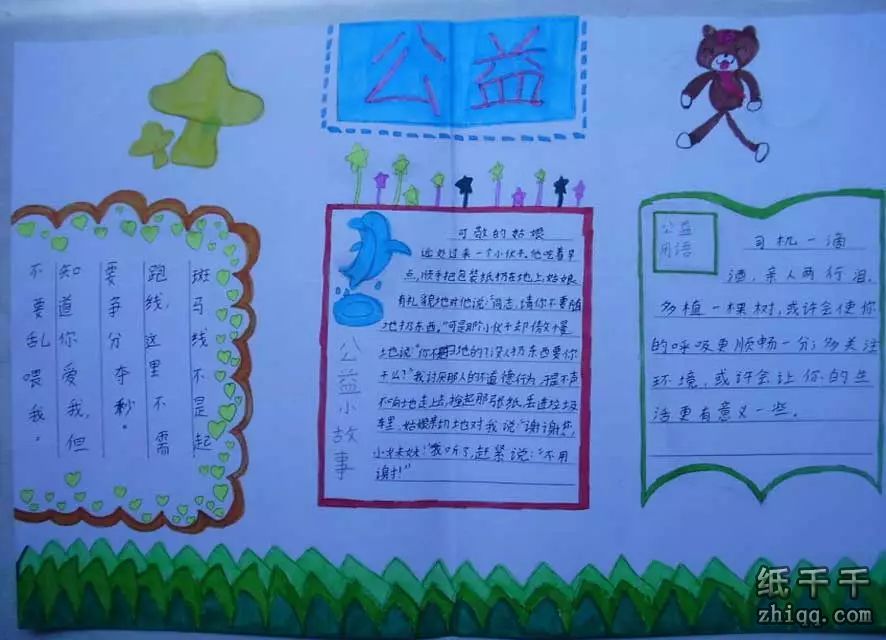 公益
斑马线不是起
跑线,这里不需
要争分夺秒。
知道你爱我,但
不要乱喂我。
公益小故事
可敬的姑娘
远处过来一个小伙子,他吃着早
点,顺手把包装纸扔在地上,姑娘
有礼貌地对他说:“同志,请你不要随
地扔东西,”可是那个小伙子却傲慢
地说“你不扫地的?没人扔东西要你
干么?”我讨厌那人的不道德行为,不声
不响地走上去,捡起那张纸,丢进垃圾
车里,姑娘亲切地对我说“谢谢您,
小妹妹!”我听了,赶紧说:“不用
谢!”
公益
用语
司机一滴
酒,亲人两行泪。
多植一棵树,或许会使你
的呼吸更顺畅一分;多关注
环境,或许会让你的生
活更有意义一些。
纸千千
zhiqq.com